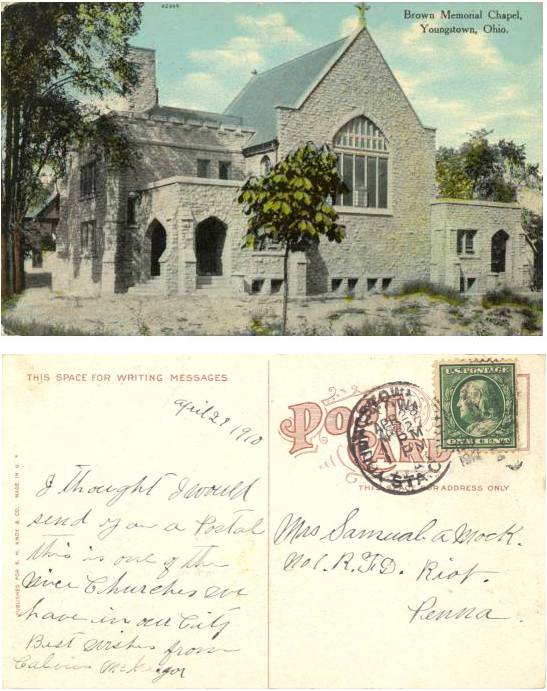 82309
Brown Memorial Chapel,
Youngstown, Ohio.
THIS SPACE FOR WRITING MESSAGES
April 29 1910
I thought I would
send you a Postal
this is one of the
nice Churches we
have in our City
Best wishes from
Calvin McKruger
PUBLISHED FOR S. H. KNOX & CO. MADE IN U. S.
Post
Card
THIS SIDE FOR ADDRESS ONLY
YOUNGSTOWN
APR
STA.
U.S. POSTAGE
ONE CENT
Mrs Samual A Mock.
No 1. R.F.D. Riot.
Penna.